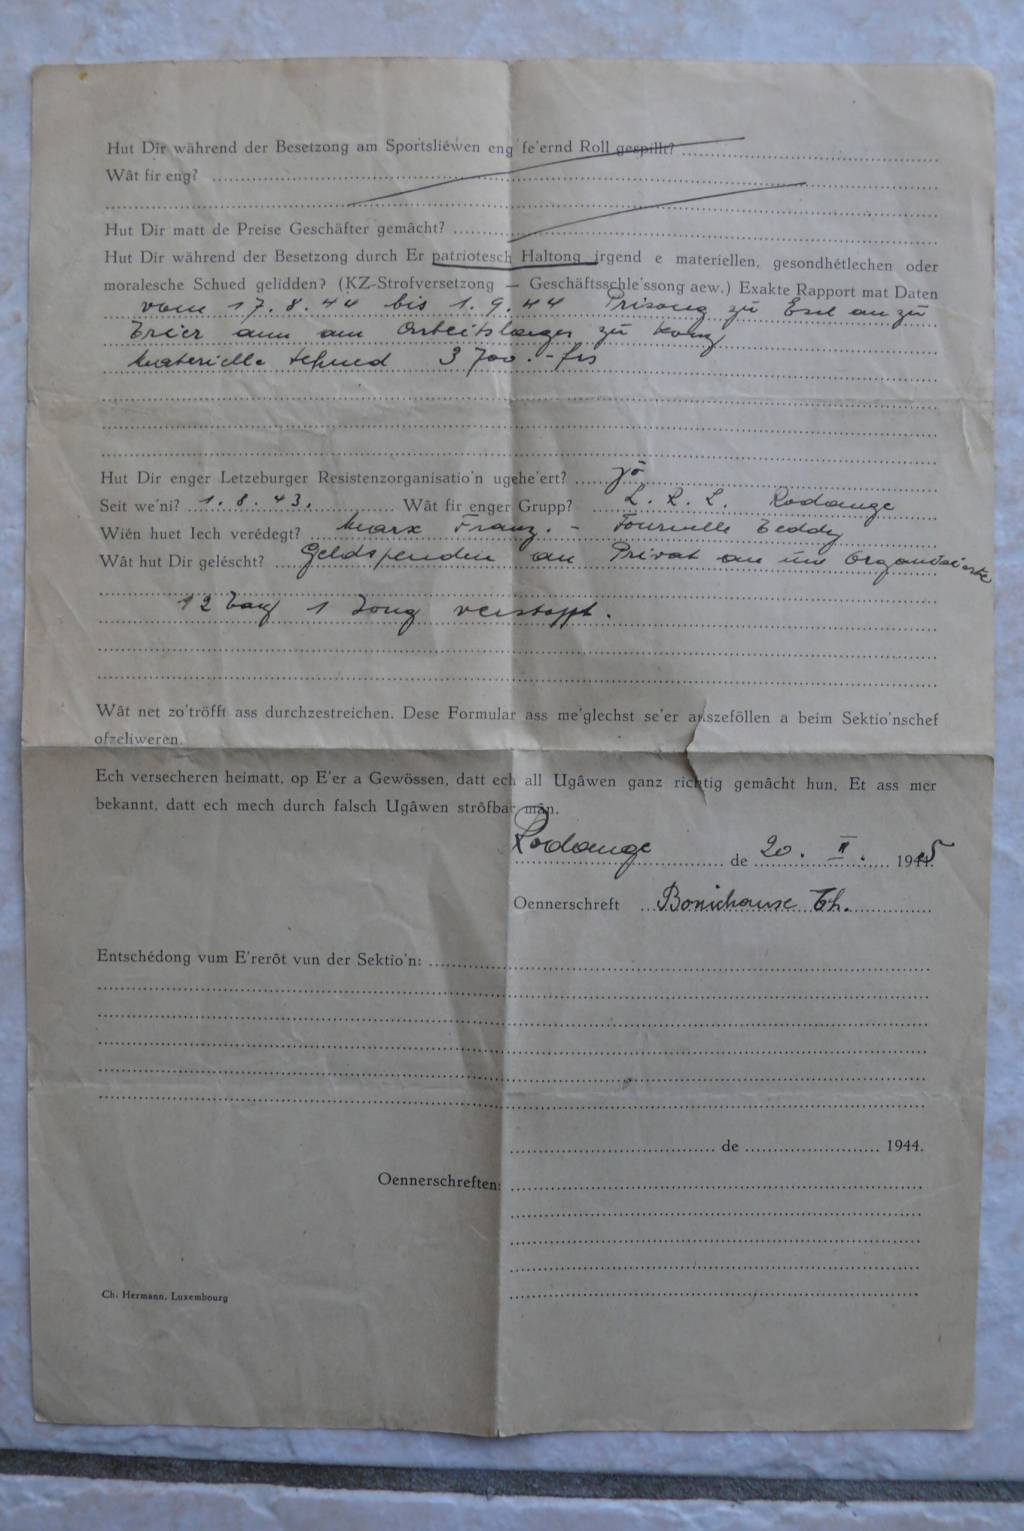 Hut Dir während der Besetzong am Sportsliéwen eng fe'ernd Roll gespillt?
Wât fir eng?
Hut Dir matt de Preise Geschäfter gemâcht?
Hut Dir während der Besetzong durch Er patriotesch Haltong irgend e materiellen, gesondhétlechen oder
moralesche Schued gelidden? (KZ-Strofversetzong — Geschäftsschle'ssong aew.) Exakte Rapport mat Daten
vom 17.8.44 bis 1.9.44 Prisong zu Esch an zu
Trier ann am Arbeitslager zu Konz
Materielle Schued 3700.- frs
Hut Dir enger Letzeburger Resistenzorganisatio'n ugehe'ert? Jō
Seit we'ni? 1.8.43. Wât fir enger Grupp? L.R.L. Rodange
Wién huet Iech verédegt? Marx Franz. - Fournelle Teddy
Wât hut Dir geléscht? Geldspenden an Privat an un Organisaierte
12 1 Jong verstoppt.
Wât net zo'tröfft ass durchzestreichen. Dese Formular ass me'glechst se'er auszeföllen a beim Sektio'nschef
ofzeliweren.
Ech versecheren heimatt, op E'er a Gewössen, datt ech all Ugâwen ganz richtig gemâcht hun. Et ass mer
bekannt, datt ech mech durch falsch Ugâwen strôfbar mân.
Rodange de 20. II. 1945
Oennerschreft Bonichause Th.
Entschédong vum E'rerôt vun der Sektio'n:
de 1944.
Oennerschreften:
Ch. Hermann, Luxembourg